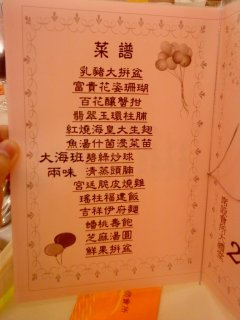 菜譜
乳豬大拼盆
富貴花姿珊瑚
百花釀蟹拑
翡翠玉環柱脯
紅燒海皇大生翅
魚湯什菌浸菜苗
大海班 碧綠炒球
兩味 清蒸頭腩
宮廷脆皮燒雞
瑤柱福建飯
吉祥伊府麵
蟠桃壽飽
芝麻湯圓
鮮果拼盆